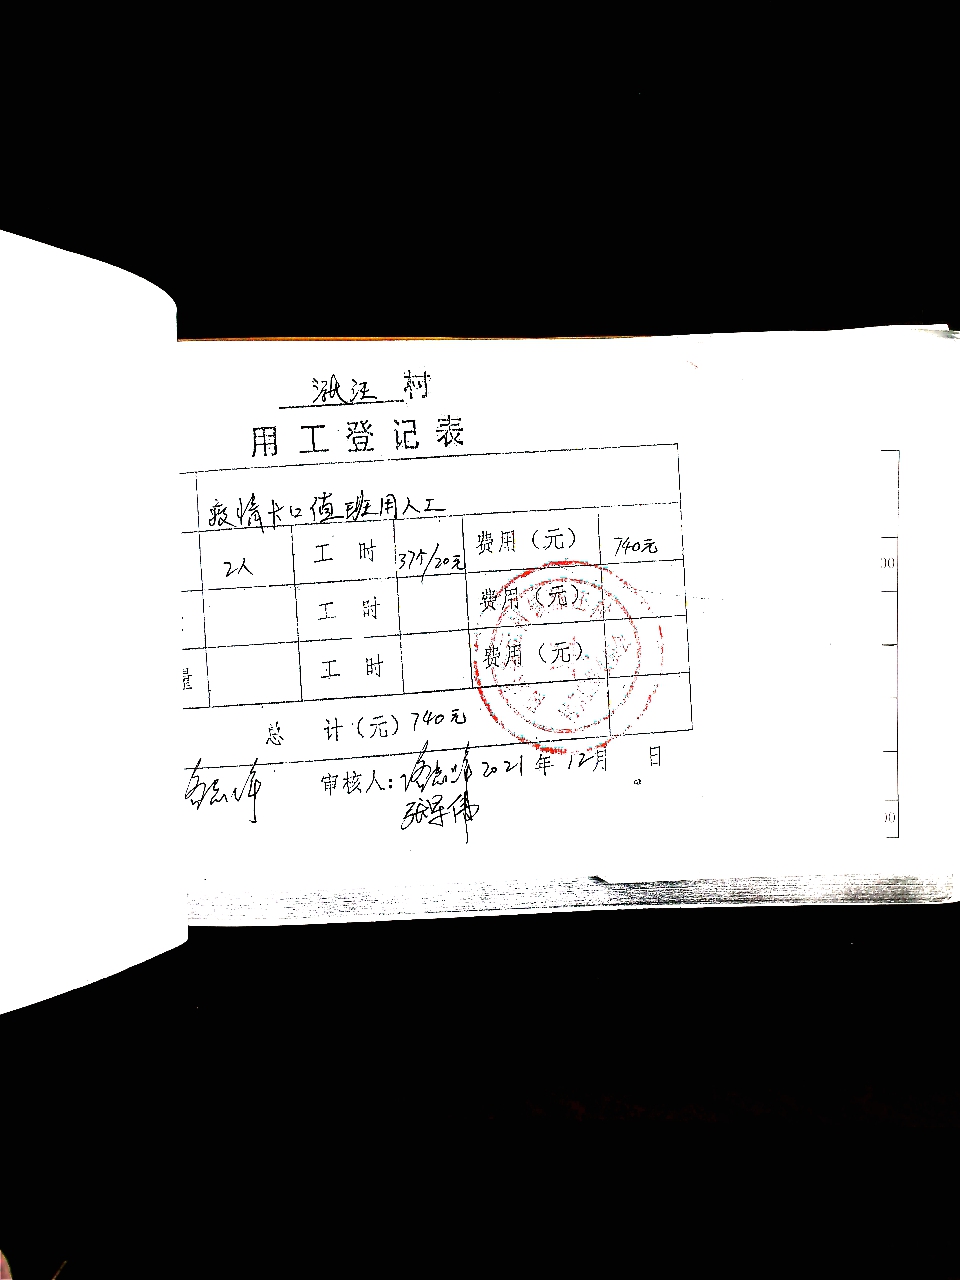 村
用工登记表
疫情卡口值班用人工
2人 工时 37个/20元 费用（元） 740元
工时 费用（元）
量 工时 费用（元）
总计（元）740元
审核人： 2021年12月 日
张军伟
00
00